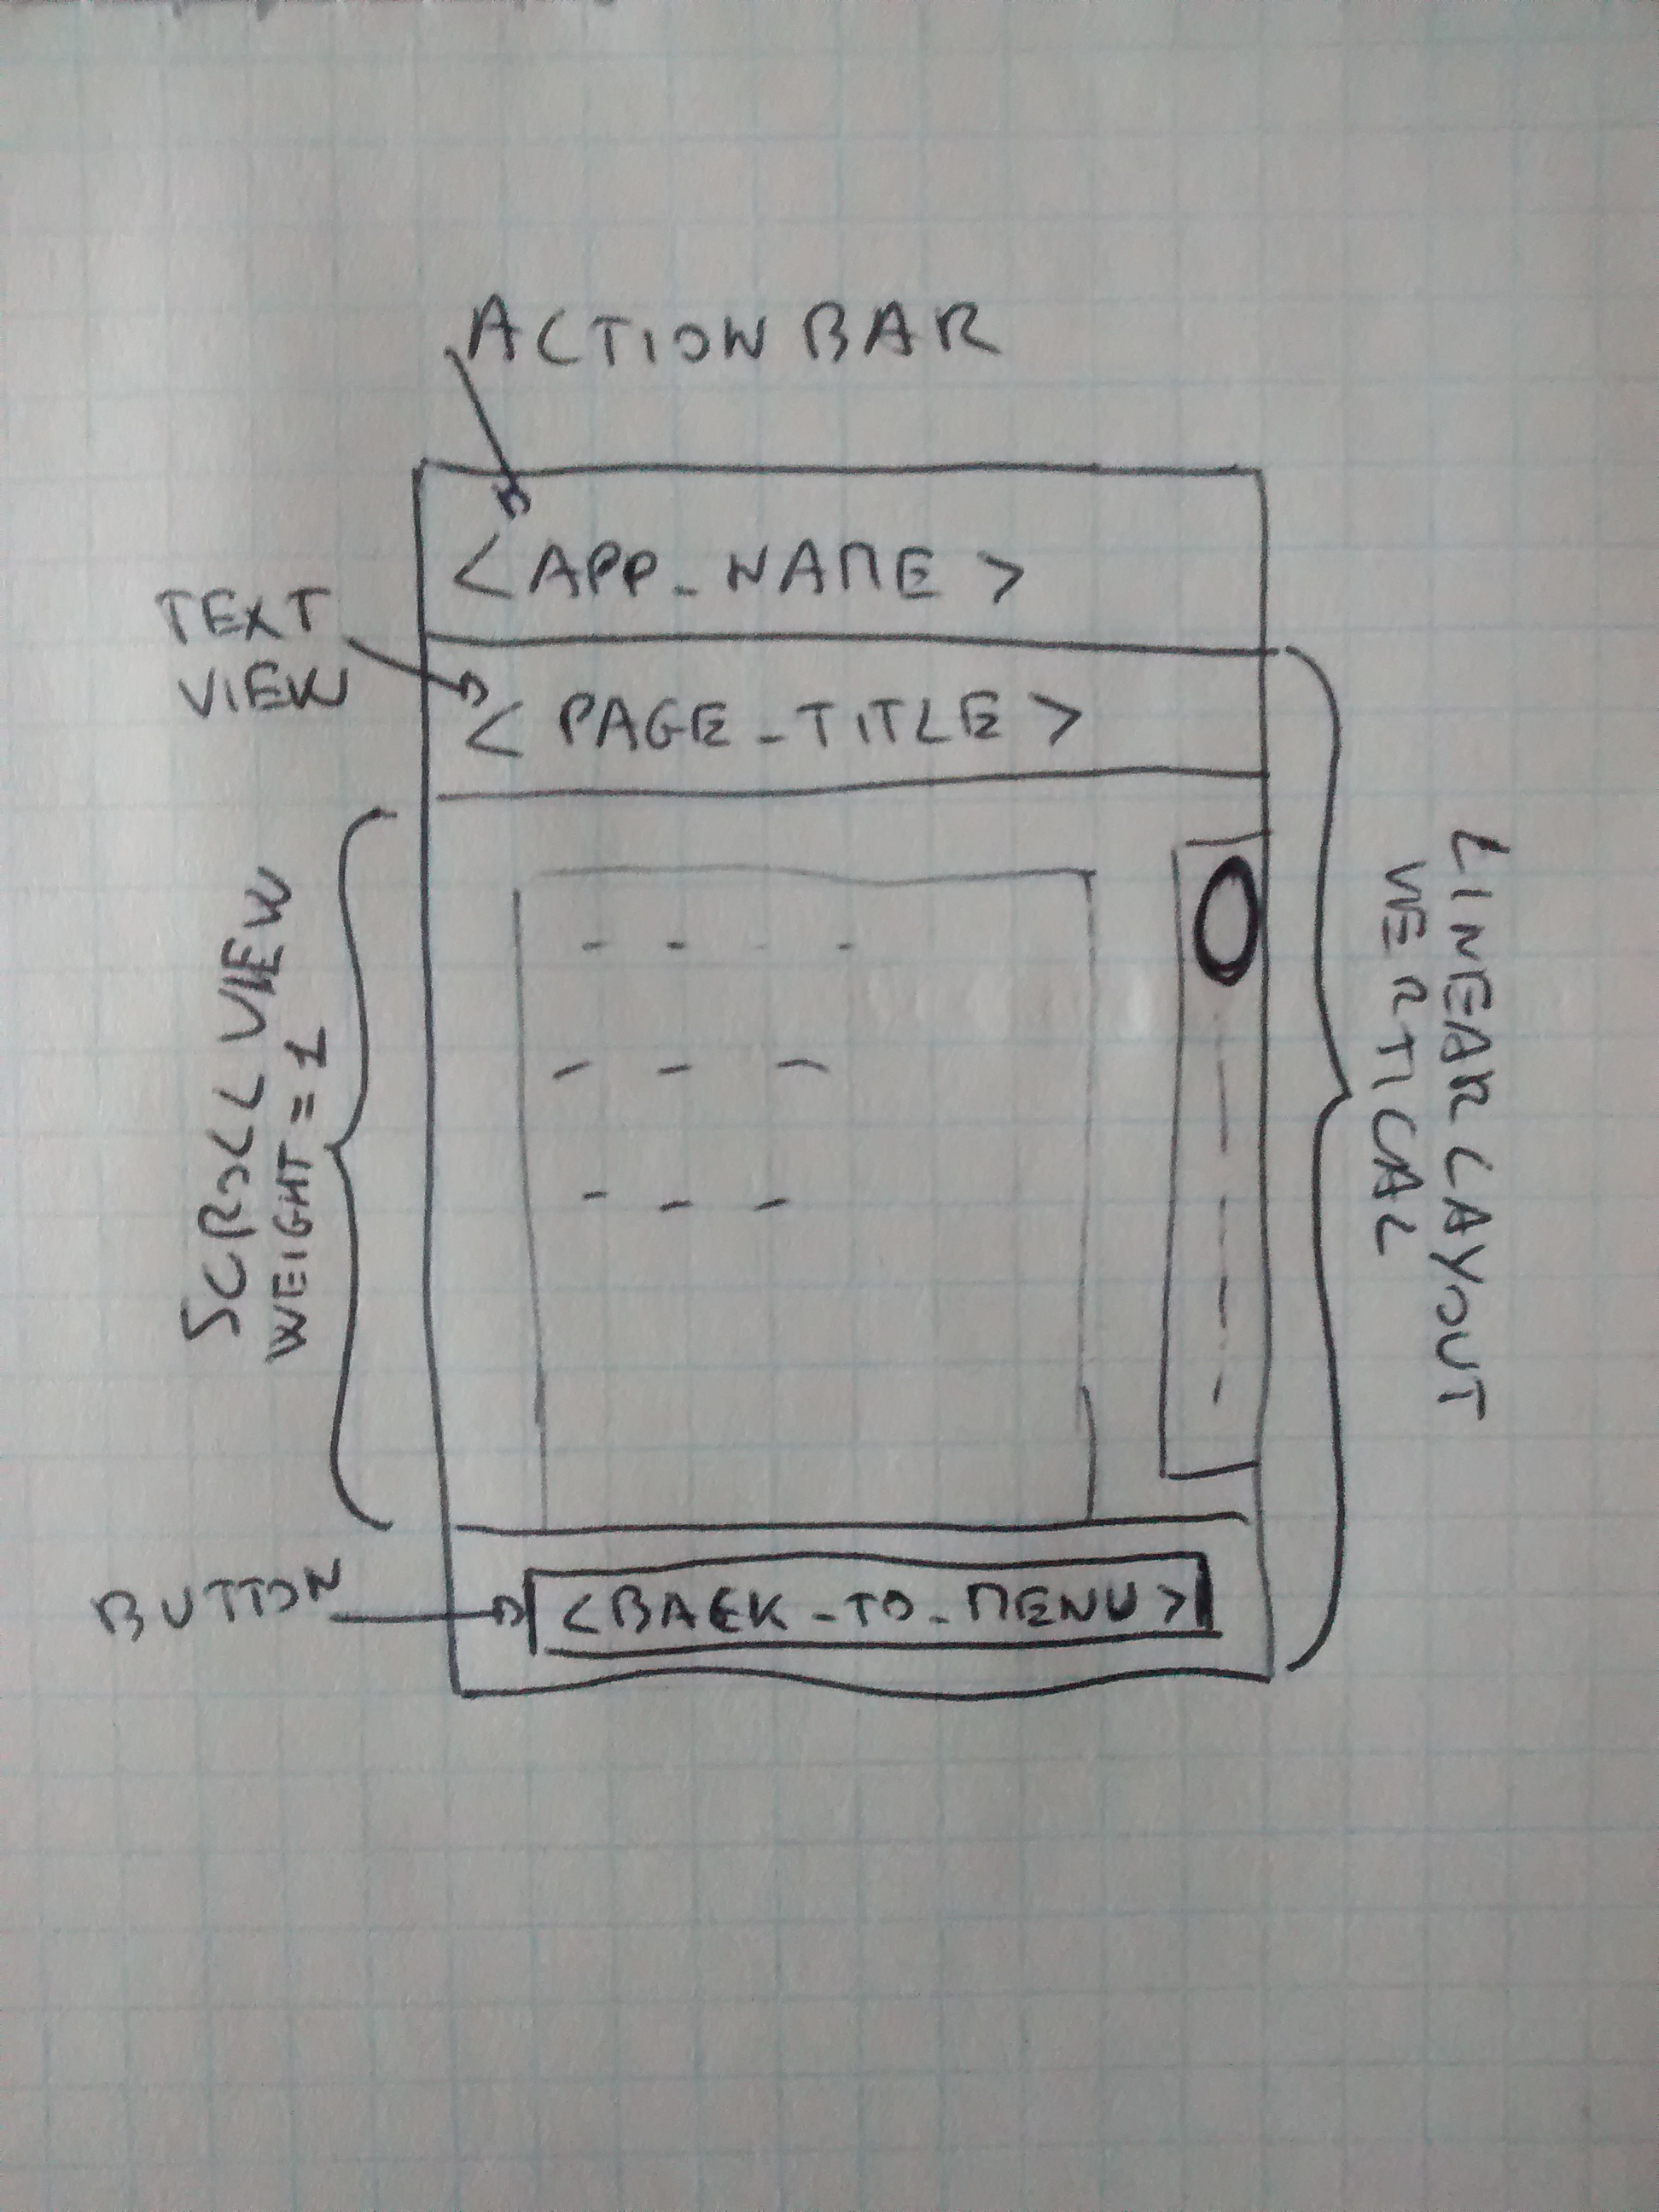 ACTION BAR
<APP_NAME>
TEXT
VIEW
<PAGE_TITLE>
SCROLL VIEW
WEIGHT = 1
LINEAR LAYOUT
VERTICAL
BUTTON
<BACK_TO_MENU>